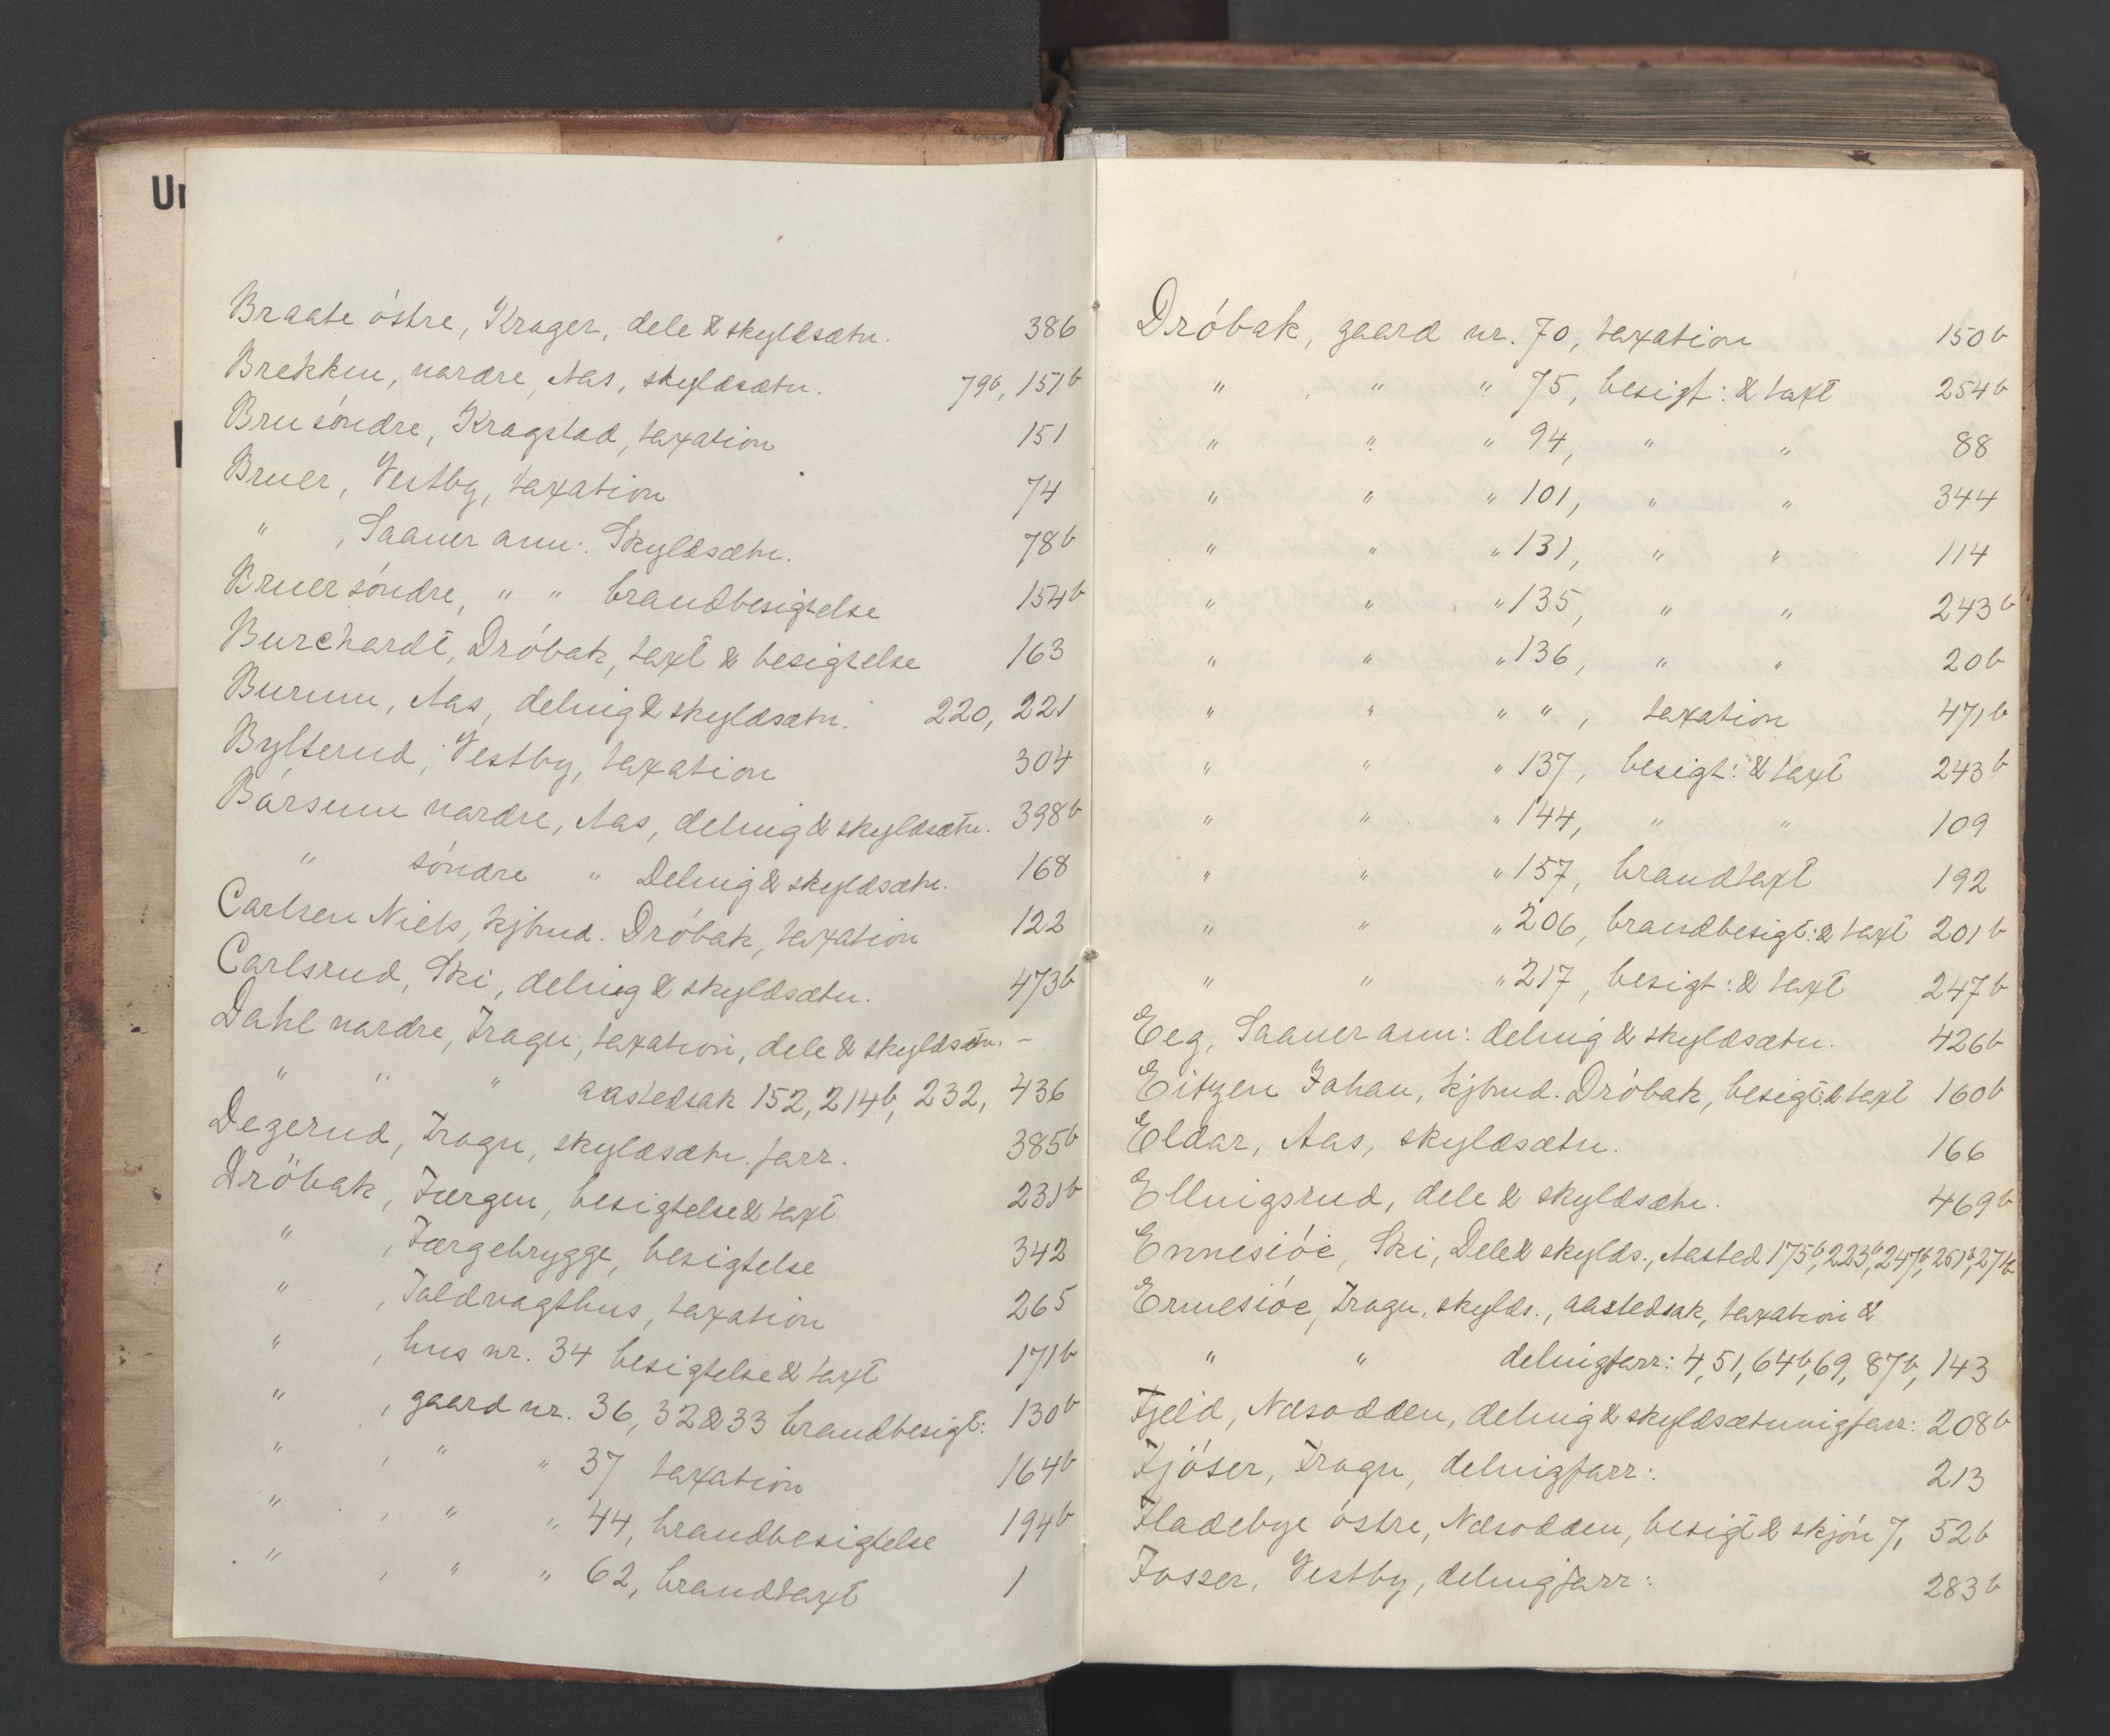 Ur
Braate östre, Krager, dele & skyldsætn. 386
Brekken, nordre, Aas, skyldsætn. 79b, 151b
Bru söndre, Kragstad, taxation 151
Bruer, Vestby, taxation 74
" , Saaner ann: Skyldsætn. 78b
Bruer söndre, " " brandbesigtelse 154b
Burchardt, Dröbak, taxt & besigtelse 163
Burum, Aas, deling & skyldsætn. 220, 221
Bylterud, Vestby, taxation 304
Börsum nordre, Aas, deling & skyldsætn. 398b
" söndre " Deling & skyldsætn. 168
Carlsen Niels, kjbmd. Dröbak, taxation 122
Carlsrud, Ski, deling & skyldsætn. 473b
Dahl nordre, Frogn, taxation, dele & skyldsætn. -
" " " aastedsak 152, 214b, 232, 436
Degerud, Frogn, skyldsætn. forr. 385b
Dröbak, Færgen, besigtelse & taxt 231b
" , Færgebrygge, besigtelse 342
" , Toldvagthus, taxation 265
" , hus nr. 34 besigtelse & taxt 171b
" , gaard nr. 36, 32 & 33 brandbesigt: 130b
" , " " 37 taxation 164b
" , " " 44, brandbesigtelse 194b
" , " " 62, brandtaxt 1
Dröbak, gaard nr. 70, taxation 150b
" , " " 75, besigt: & taxt 254b
" " " 94, " " 88
" " " 101, " " 344
" " " 131, " " 114
" " " 135, " " 243b
" " " 136, " " 20b
" " " ", taxation 471b
" " " 137, besigt: & taxt 243b
" " " 144, " " 109
" " " 157, brandtaxt 192
" " " 206, brandbesigt: & taxt 201b
" " " 217, besigt: & taxt 247b
Eeg, Saaner ann: deling & skyldsætn. 426b
Eitzen Johan, kjbmd. Dröbak, besigt: & taxt 160b
Eldor, Aas, skyldsætn. 166
Ellingsrud, dele & skyldsætn. 469b
Ennesiöe, Ski, Dele & skylds., Aasted 175b, 223b, 247b, 261b, 271b
Ermesiöe, Frogn, skylds., aastedsak, taxation &
" " delingforr: 4, 51, 64b, 69, 87b, 143
Fjeld, Næsodden, deling & skyldsætningforr: 208b
Fjöser, Frogn, delingforr: 213
Fladebye östre, Næsodden, besigt & skjön 7, 52b
Fosser, Vestby, delingforr: 283b